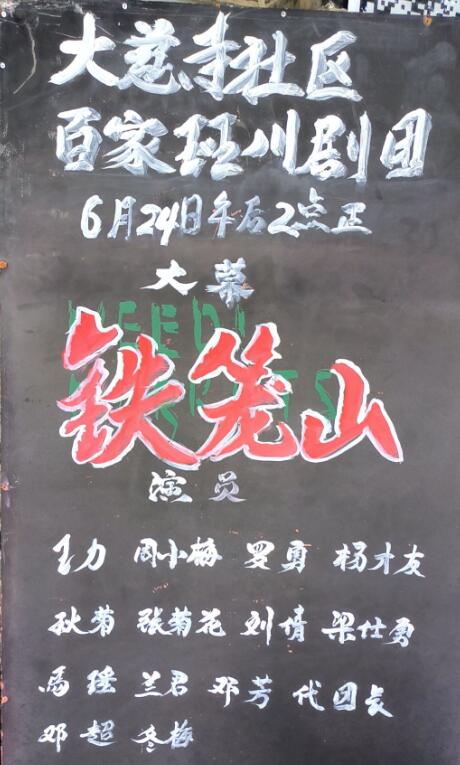 大慈寺社区
百家班川剧团
6月24日午后2点正
大幕
铁笼山
演员
王力 周小梅 罗勇 杨才友
秋菊 张菊花 刘倩 梁仕勇
马瑶 兰君 邓芳 代团长
邓超 冬梅